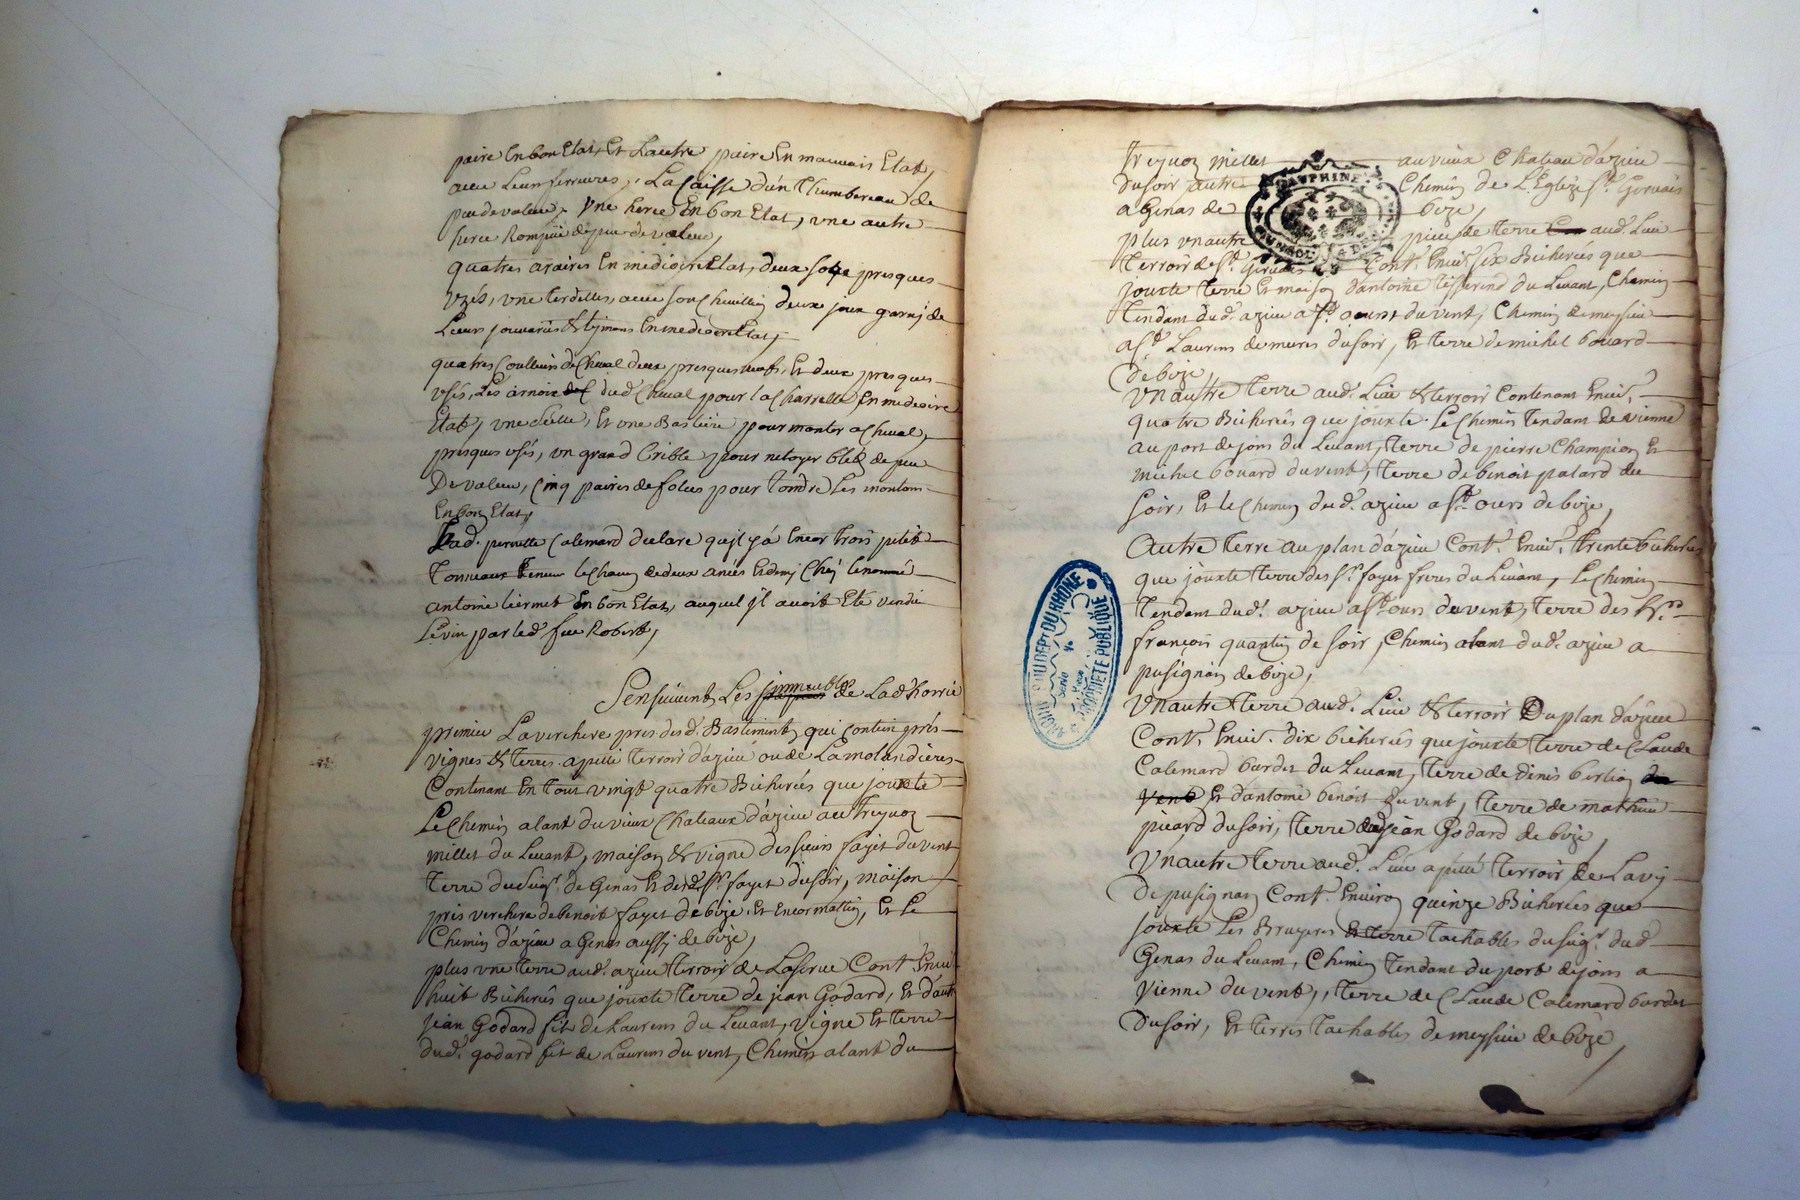 paire En bon Etat, Et Lautre paire En mauvais Etat,
avec Leurs ferrures, La Caisse d'un Thumbereau de
peu de valeur, Une herce En bon Etat, une autre
herce Rompüe de peu de valeur,
quatres araires En mediocre Etat, deux presques
Uzés, une avec son Chevillier deux joux garnj de
Leurs En mediocre Etat,
quatres Colliers de Cheval deux presques neufs, Et deux presques
usés, Les arnois dud. Cheval pour la Charrette En mediocre
Etat, une Celle, Et une Bastiere pour monter a Cheval,
presques usés, un grand Crible pour netoyer bled de peu
De valeur, Cinq paires de foles pour Tondre Les moutons
En bon Etat,
Lad. pernette Calemard declare qu'jl y á Encor Trois petits
Tonneaux Tenir le Chacun de deux anées Et demj Chéz le nommé
antoine liermet En bon Etat, auquel jl avoit Eté vendu
Le vin par led. feu Robert,
Sensuivent Les jmmeubles de Lad. horrie
premier La verchere pres desd. Bastiments, qui contien prés
vignes & Terres apellé Terroir d'azieu ou de La molandieres
Contenant En Tout vingt quatre Bicherées que jouxte
Le Chemin alant du vieux Chateaux d'azieu au Treynoz
millet du Levant, maison & vigne des sieurs fayet du vent
Terre du Seigr. de Genas Et desd. Srs. fayet du soir, maison
prés verchere de benoit fayet de bize, Et Encor mattin, Et Le
Chemin d'azieu a Genas aussj de bize,
plus une Terre aud. azieu Terroir de Laserue Contt. Envir.
huit Bicherées que jouxte Terre de jean Godard, Et d'autre
jean Godard fils de Laurens du Levant, Vigne Et Terre
dud. godard fils de Laurens du vent, Chemin alant du
Treynoz millet au vieux Chateau d'azieu
du soir autre Chemin de L'Eglize St. Gervais
a Genas de bize,
plus un autre piece de Terre aud. Lieu
Terroir de St. Gervais Cont. Envir. six Bicherées que
jouxte Terre Et maison d'antoine Tisserend du Levant, Chemin
Tendant dud. azieu a St. ours du vent, Chemin de meysieu
a St. Laurens de mures du soir, Et Terre de michel bouard
de bize,
Un autre Terre aud. Lieu & Terroir Contenant Envir.
quatre Bicherées que jouxte Le Chemin Tendant de vienne
au port de jons du Levant, Terre de pierre Champion Et
michel bouard du vent, Terre de benoit palard du
soir, Et le Chemin dud. azieu a St. ours de bize,
Autre Terre au plan d'azieu Contt. Envir. Trente bicherées
que jouxte Terre des Srs. fayet freres du Levant, Le Chemin
Tendant dud. azieu a St. ours du vent, Terre des hrs.
françois quantin de soir, Chemin alant dud. azieu a
pusignan de bize,
Un autre Terre aud. Lieu & Terroir Du plan d'azieu
Contt. Envir. dix bicherées que jouxte Terre de Claude
Calemard burdet du Levant, Terre de denis berlioz du
vent Et d'antoine benoit du vent, Terre de mathieu
picard du soir, Terre de jean Godard de bize,
Un autre Terre aud. Lieu apellé Terroir de Lavy
De pusignan Contt. Environ quinze Bicherées que
jouxte Les Bruyeres Et Terre Tachables du Seigr. dud.
Genas du Levant, Chemin Tendant du port de jons a
Vienne du vent, Terre de Claude Calemard burdet
Du soir, Et Terres Tachables de meysieu de bize,
DAUPHINE
ARCHIVES DU DEPT DU RHONE
PROPRIETE PUBLIQUE